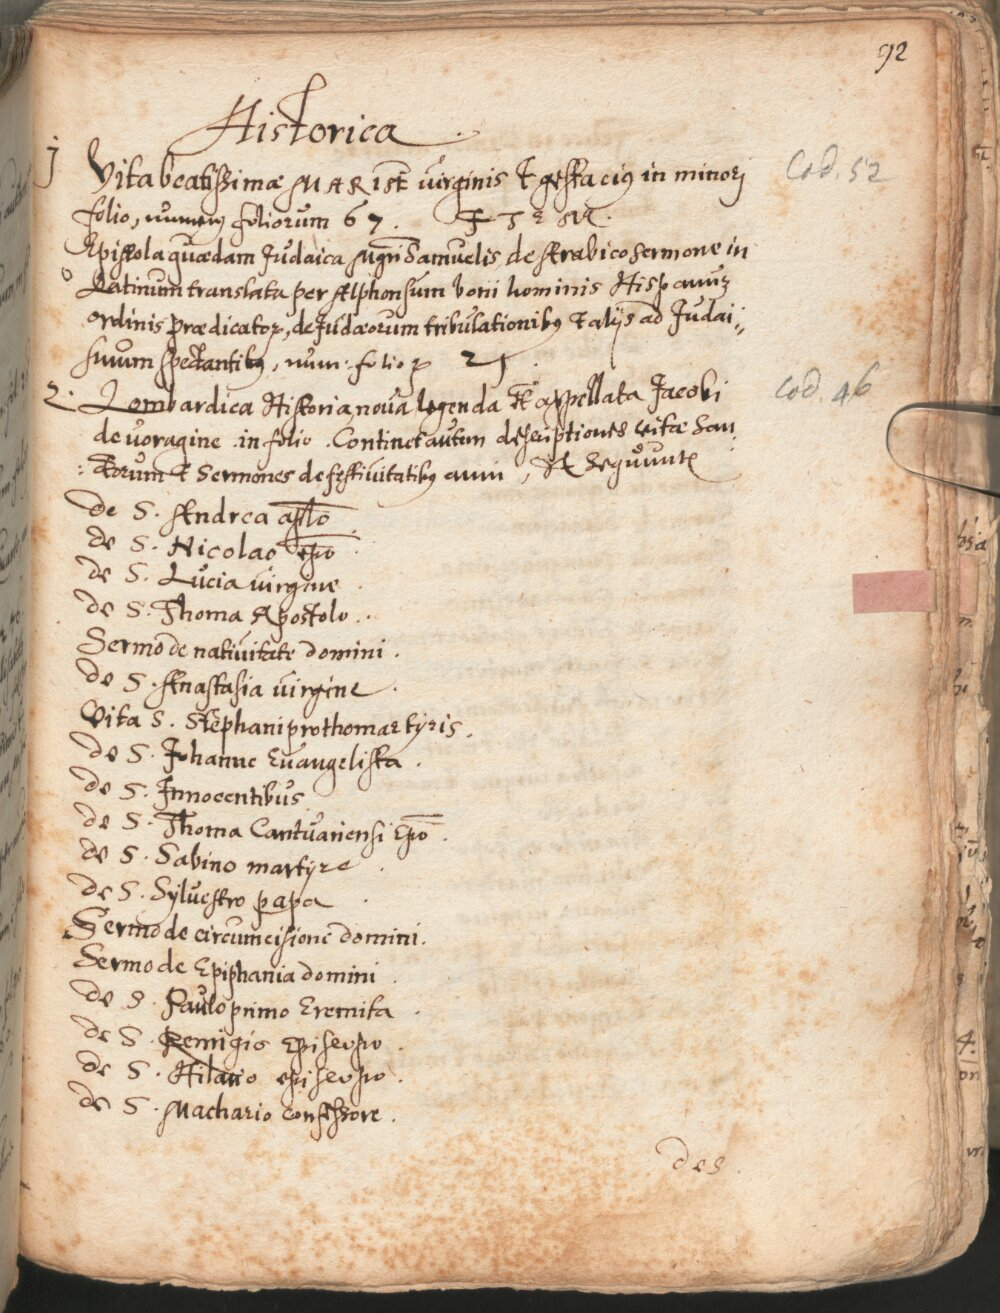 92
Historica
j Vita beatissimæ MARIÆ virginis et gesta eius in minori Cod. 52
folio, numerus foliorum 67.
Epistola quædam Judaica Mgri Samuelis, de Arabico sermone in
Latinum translata per Alphonsum boni hominis Hispanum
ordinis prædicator, de Judæorum tribulationibus et aliis ad Judai,,
smum spectantibus, num: folior 21
2. Lombardica Historia, nova legenda appellata Jacobi Cod. 46
de voragine in folio. Continet autem descriptiones vitæ San,,
ctorum et Sermones de festivitatibus anni, Ut sequuntur
de S. Andrea aplo
de S. Nicolao epo
de S. Lucia virgine
de S. Thoma Apostolo.
Sermo de nativitate domini.
de S. Anastasia virgine.
Vita S. Stephani prothomartyris.
de S. Johanne Evangelista.
de S. Innocentibus
de S. Thoma Cantuariensi Epo.
de S. Sabino martyre.
de S. Sylvestro papa.
Sermo de circumcisione domini.
Sermo de Epiphania domini
de S. Paulo primo Eremita.
de S. Remigio Episcopo.
de S. Hilario episcopo.
de S. Machario Confessore.
de S.